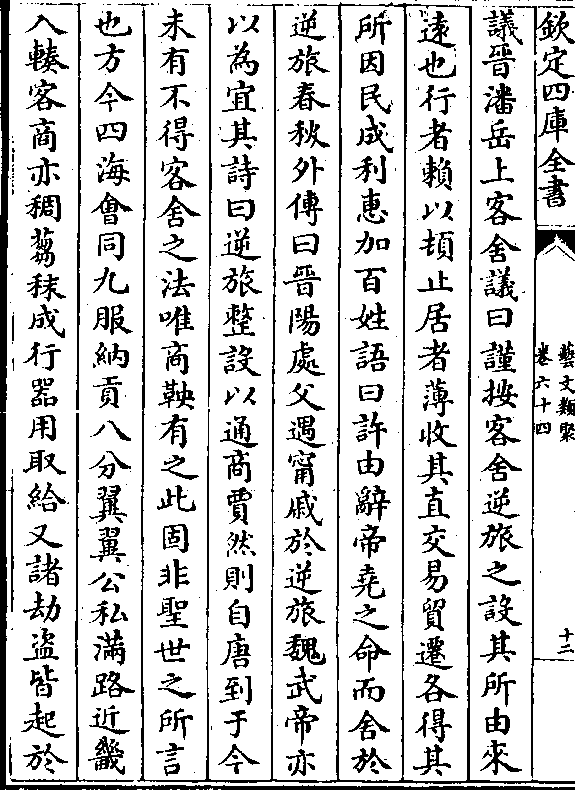 欽定四庫全書
藝文類聚
卷六十四
十二
議晉潘岳上客舍議曰謹按客舍逆旅之設其所由來
遠也行者賴以頓止居者薄收其直交易貿遷各得其
所因民成利惠加百姓語曰許由辭帝堯之命而舍於
逆旅春秋外傳曰晉陽處父遇甯戚於逆旅魏武帝亦
以為宜其詩曰逆旅整設以通商賈然則自唐到于今
未有不得客舍之法唯商鞅有之此固非聖世之所言
也方今四海會同九服納貢八分翼翼公私滿路近畿
入輳客商亦稠芻秣成行器用取給又諸劫盜皆起於